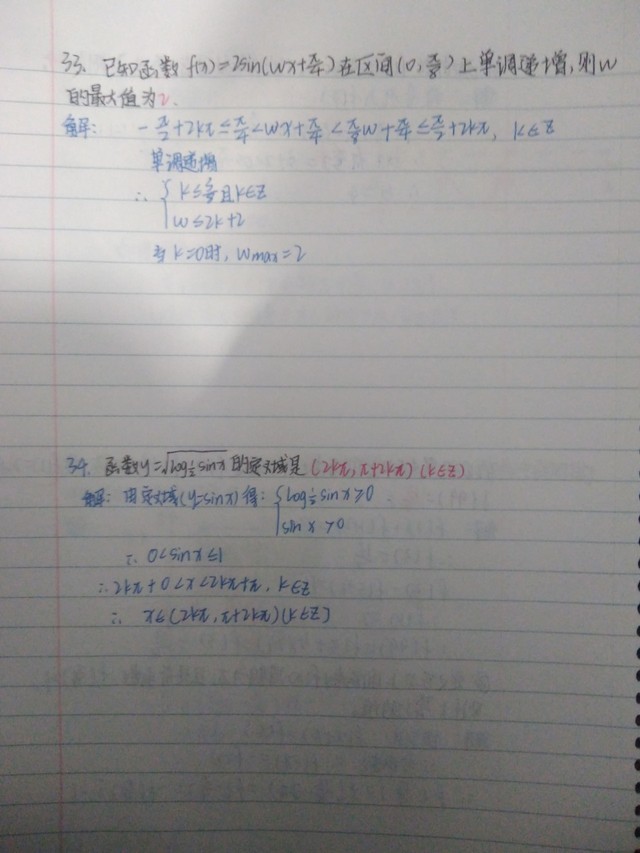 33. 已知函数 f(x)=2sin(wx+π/4)在区间(0,π/8)上单调递增,则w
的最大值为2.
解: -π/2+2kπ≤π/4<wx+π/4<π/8w+π/4≤π/2+2kπ, k∈Z
单调递增
∴ { k≤3/8且k∈Z
w≤2k+2
当 k=0时, wmax=2
34. 函数y=√log½sinx 的定义域是 (2kπ, π+2kπ) (k∈Z)
解: 由定义域(y=sinx)得: { log½sinx≥0
sinx>0
∴ 0<sinx≤1
∴ 2kπ+0<x<2kπ+π, k∈Z
∴ x∈(2kπ, π+2kπ)(k∈Z)